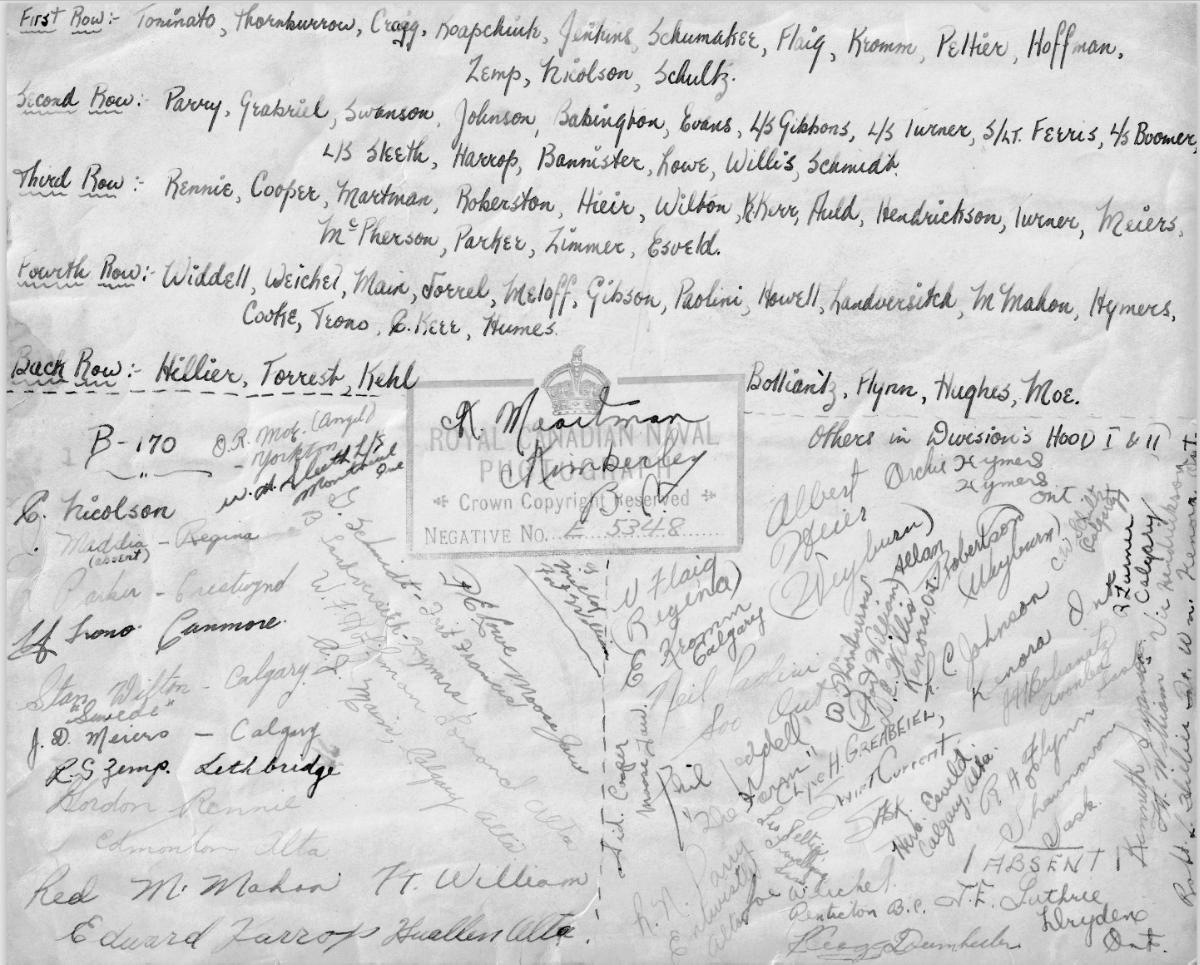 First Row:- Toninato, Thornburrow, Cragg, Koapchuk, Jenkins, Schumaker, Flaig, Kromm, Peltier, Hoffman,
Zemp, Nicolson, Schultz.
Second Row:- Parry, Grabriel, Swanson, Johnson, Babington, Evans, L/S Gibbons, L/S Turner, S/Lt. Ferris, L/S Boomer,
L/S Sleeth, Harrop, Bannister, Lowe, Willis, Schmidt.
Third Row:- Rennie, Cooper, Martman, Roberston, Hieir, Wilton, K.Kerr, Auld, Hendrickson, Turner, Meiers,
McPherson, Parker, Zimmer, Esveld.
Fourth Row:- Widdell, Weichel, Main, Jorrel, Meloff, Gibson, Paolini, Howell, Landversitch, McMahon, Hymers,
Cooke, Trono, R. Kerr, Humes.
Back Row:- Hillier, Torrest, Kehl
Bolliantz, Flynn, Hughes, Moe.
Others in Division's HOOD I & II
B-170
O.R. Moe. (Angel)
Yorkton
W. A. Sleeth L/S
ROYAL CANADIAN NAVAL
PHOTOGRAPH
Crown Copyright Reserved
NEGATIVE NO. E 5348
Kimberley
B.C.
C. Nicolson
Regina
(absent)
Parker -
Trono Canmore
Stan Wilton - Calgary
"Swede"
J. D. Meiers - Calgary
R. G Zemp. Lethbridge
Gordon Rennie
Edmonton Alta
Red McMahon Ft. William
Edward Harrop Huallen Alta.
G. Schmidt - Fort Frances
B. Landversitch
W. F. Hoffman
A. J. Main, Calgary Alta
D E Lowe Moose Jaw
Sid. Cooper
Moose Jaw.
V Flaig
(Regina)
Kromm
Calgary
Neil Paolini
Soo Ont
Albert
Heier
(Weyburn)
Archie Hymers
Hymers
Ont
C.W. Schultz
Calgary
R Turner
Calgary
Allan
Robertson
(Wayburn)
W Thornburrow
(Fort William)
D.E. Willis
Kenora Ont
R. C. Johnson
Kenora Ont
Avonlea
Sask
R A Flynn
Shaunavon
Sask.
L/pc H. GREABEIEL,
Swift Current
SASK.
Herb. Esveld.
Calgary. Alta.
Les Peltier
R. N. Parry
Entwistle
Alta
Joe Weichel.
Penticton B.C.
ABSENT
J. E. Guthrie
Dryden
Ont.
Kenneth
Ft. William
Vic Hendrickson
Kenora Ont.